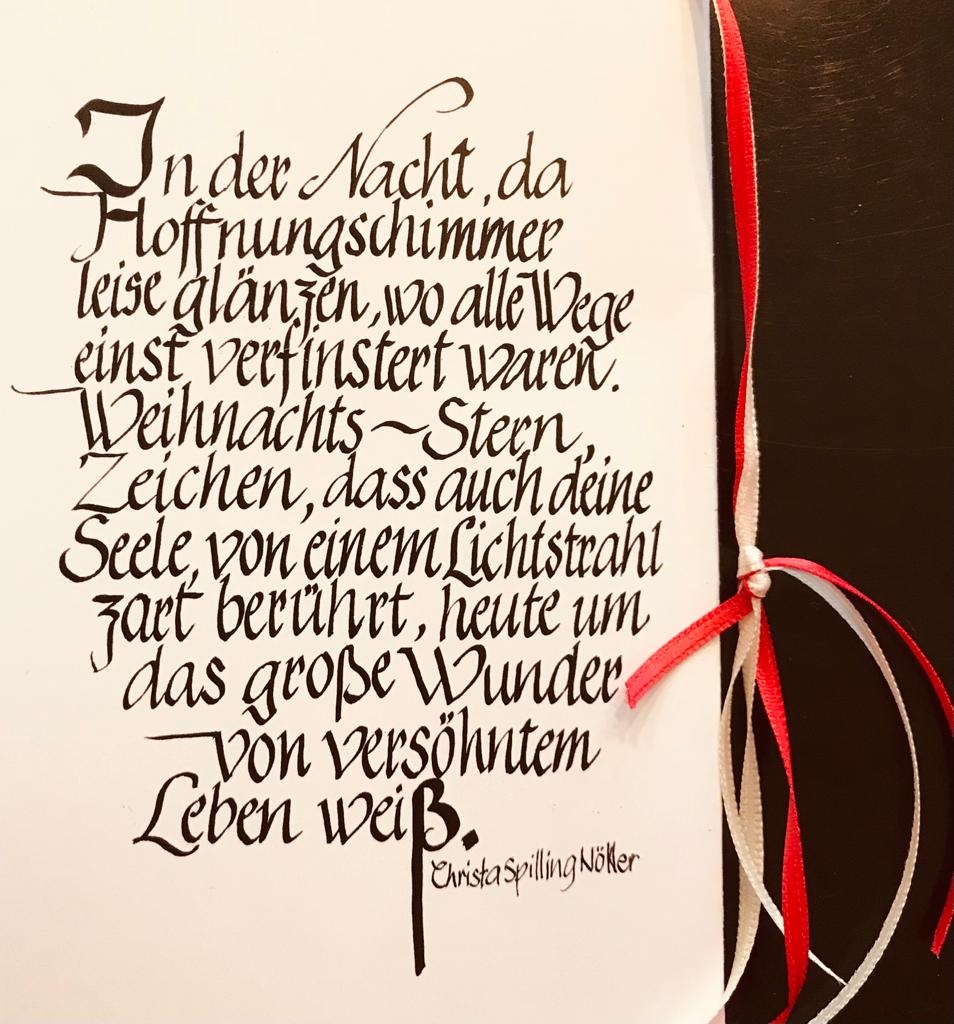 In der Nacht, da
Hoffnungschimmer
leise glänzen, wo alle Wege
einst verfinstert waren.
Weihnachts~Stern,
Zeichen, dass auch deine
Seele, von einem Lichtstrahl
zart berührt, heute um
das große Wunder
von versöhntem
Leben weiß.
Christa Spilling Nöker